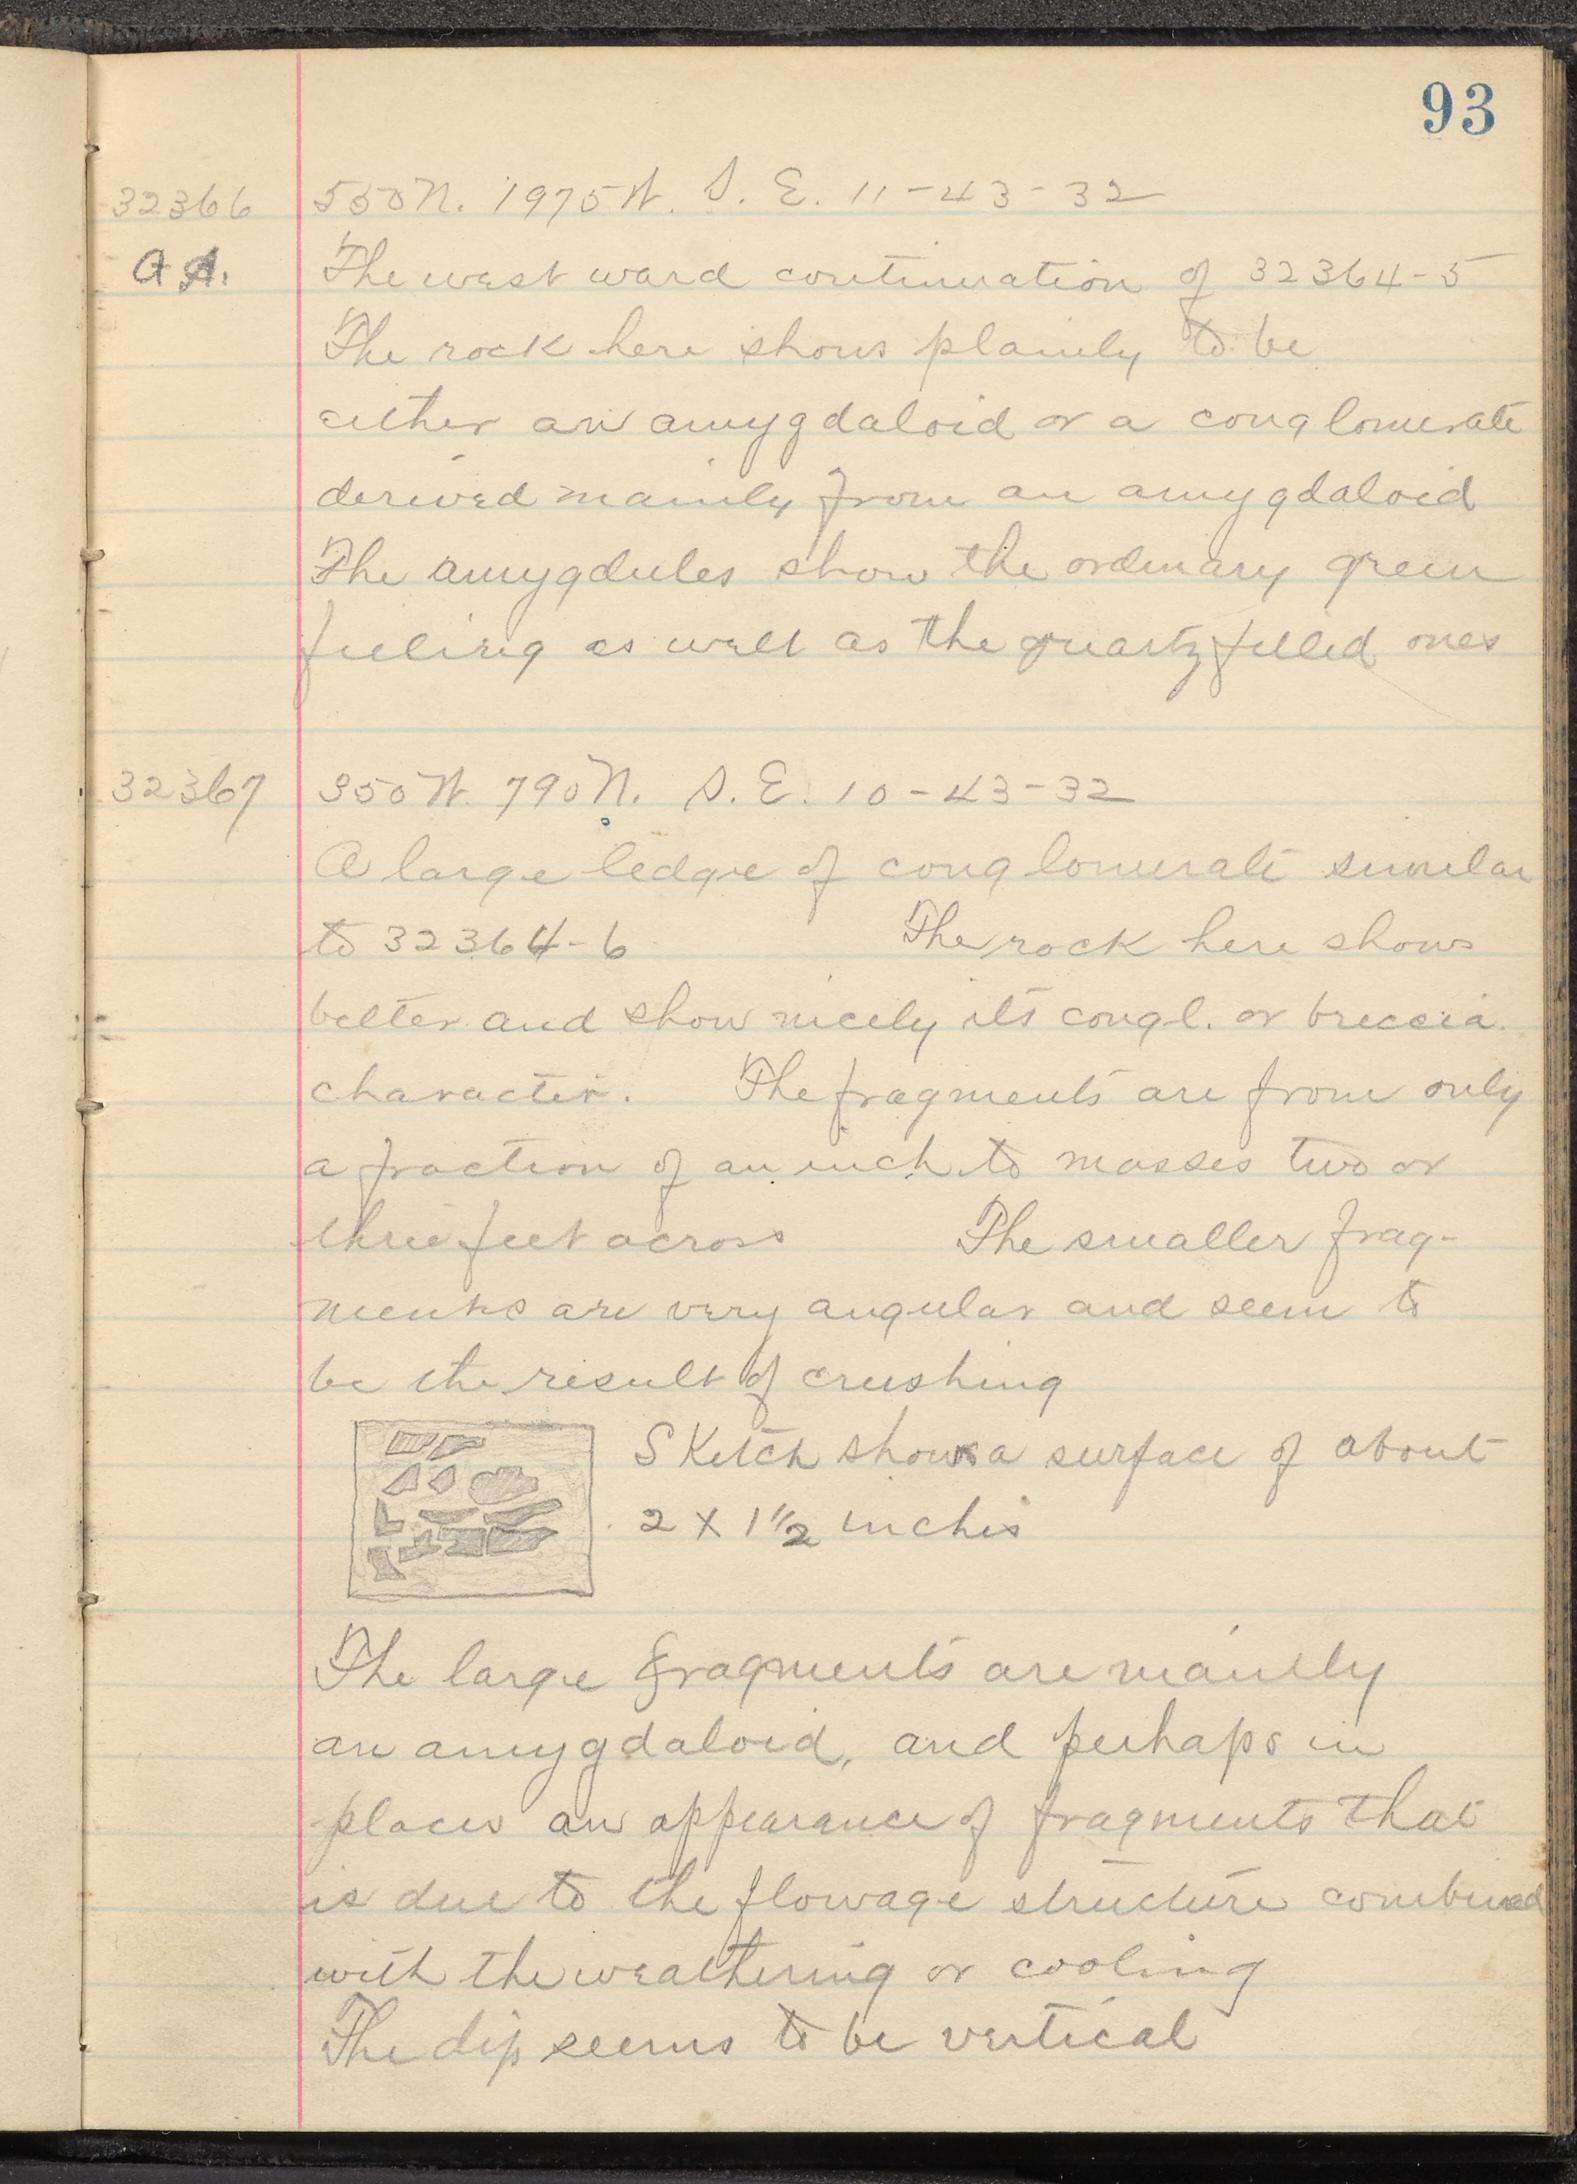 93
32366 550 N. 1975 W. S. E. 11-43-32
A A. The westward continuation of 32364-5
The rock here shows plainly to be
either an amygdaloid or a conglomerate
derived mainly from an amygdaloid
The amygdules show the ordinary green
filling as well as the quartz filled ones
32367 350 W. 790 N. S. E. 10-43-32
A large ledge of conglomerate similar
to 32364-6 The rock here shows
better and show nicely its congl. or breccia
character. The fragments are from only
a fraction of an inch to masses two or
three feet across The smaller frag-
ments are very angular and seem to
be the result of crushing
Sketch shows a surface of about
2 X 1 1/2 inches
The large fragments are mainly
an amygdaloid, and perhaps in
places an appearance of fragments that
is due to the flowage structure combined
with the weathering or cooling
The dip seems to be vertical